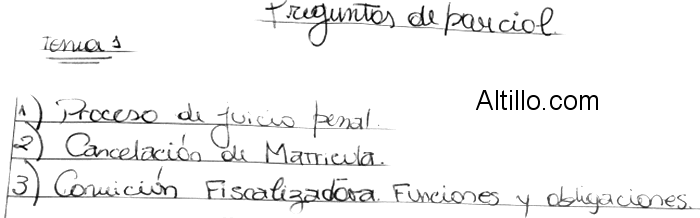 Preguntas de parcial.
Tema 1
Altillo.com
1) Proceso de juicio penal.
2) Cancelación de Matricula.
3) Comición Fiscalizadora. Funciones y obligaciones.